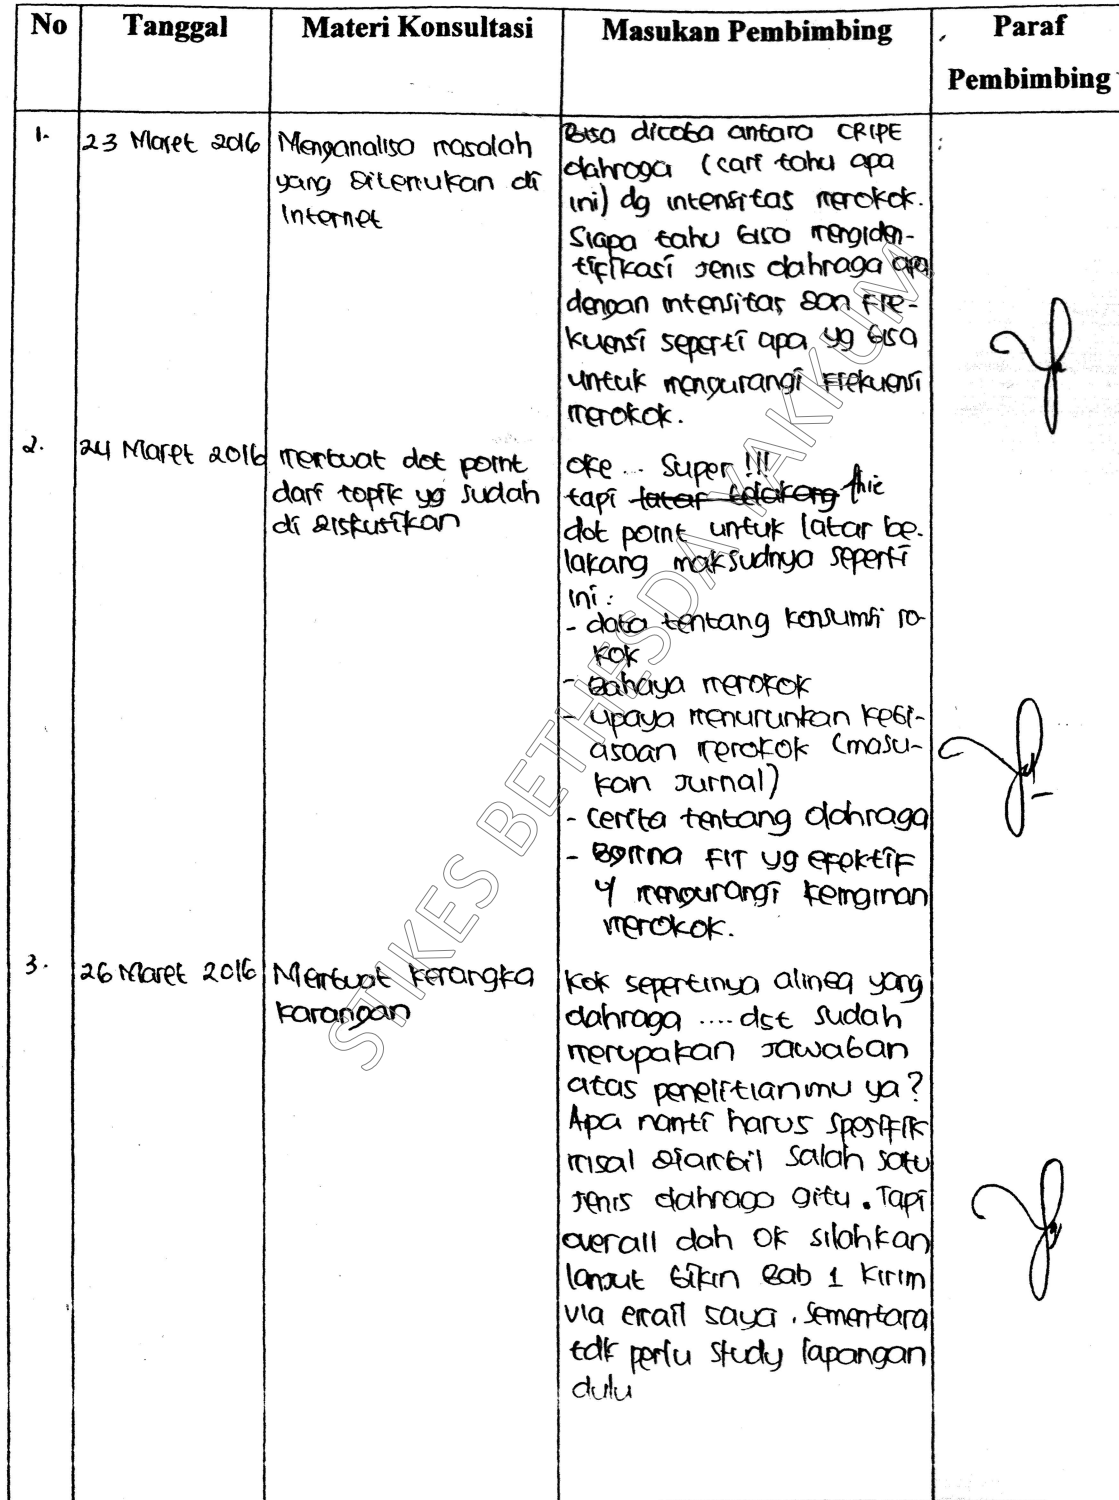 No Tanggal Materi Konsultasi Masukan Pembimbing Paraf
Pembimbing
1. 23 Maret 2016 Menganalisa masalah
yang ditemukan di
Internet
Bisa dicoba antara CRIPE
olahraga (cari tahu apa
ini) dg intensitas merokok.
Siapa tahu bisa mengiden-
tifikasi jenis olahraga apa
dengan intensitas dan fre-
kuensi seperti apa yg bisa
untuk mengurangi frekuensi
merokok.
2. 24 Maret 2016 membuat dot point
dari topik yg sudah
di diskusikan
Oke ... Super !!!
tapi latar belakang
dot point untuk latar be-
lakang maksudnya seperti
ini :
- data tentang konsumsi ro-
kok
- Bahaya merokok
- upaya menurunkan kebi-
asaan merokok (masu-
kan Jurnal)
- Cerita tentang olahraga
- FIT yg efektif
u/ mengurangi keinginan
merokok.
3. 26 Maret 2016 Membuat kerangka
karangan
Kok sepertinya alinea yang
olahraga .... dst sudah
merupakan jawaban
atas penelitianmu ya?
Apa nanti harus spesifik
misal diambil salah satu
jenis olahraga gitu. Tapi
overall dah OK silahkan
lanjut bikin Bab 1 Kirim
via email saya. Sementara
tdk perlu study lapangan
dulu
STIKES BETHESDA YAKKUM